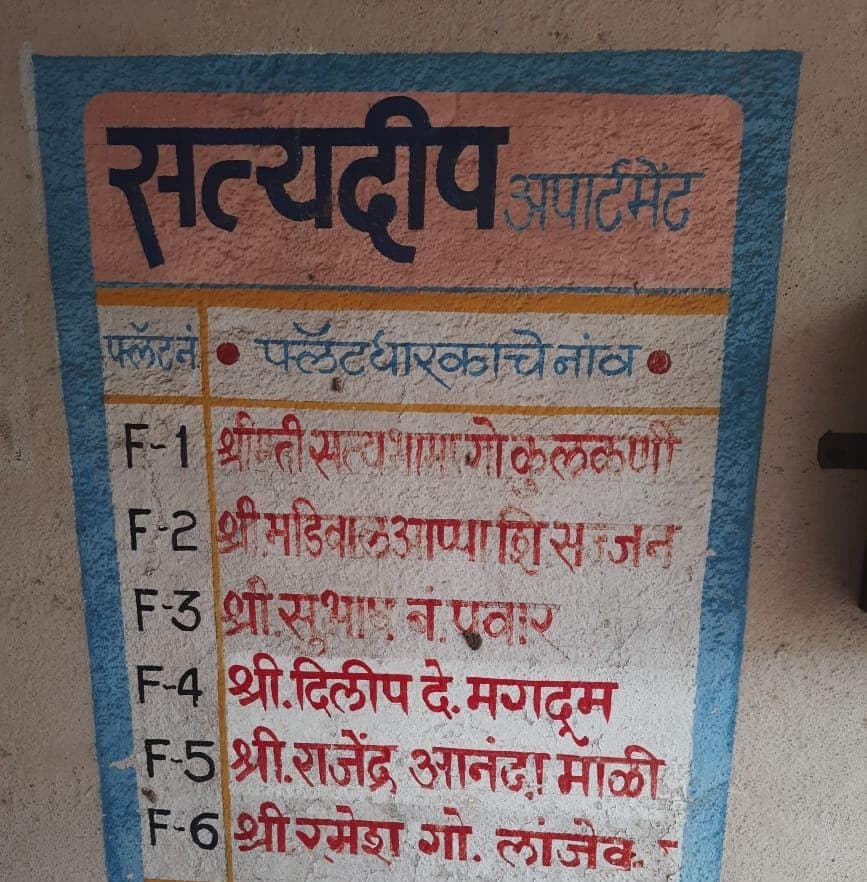 सत्यदीप अपार्टमेंट
फ्लॅट नं • फ्लॅटधारकाचे नांव •
F-1 श्रीमती सत्यभामा गो कुलकर्णी
F-2 श्री. मडिवालआप्पा शि सज्जन
F-3 श्री. सुभाष नं. पवार
F-4 श्री. दिलीप दे. मगदूम
F-5 श्री. राजेंद्र आनंदा माळी
F-6 श्री रमेश गो.